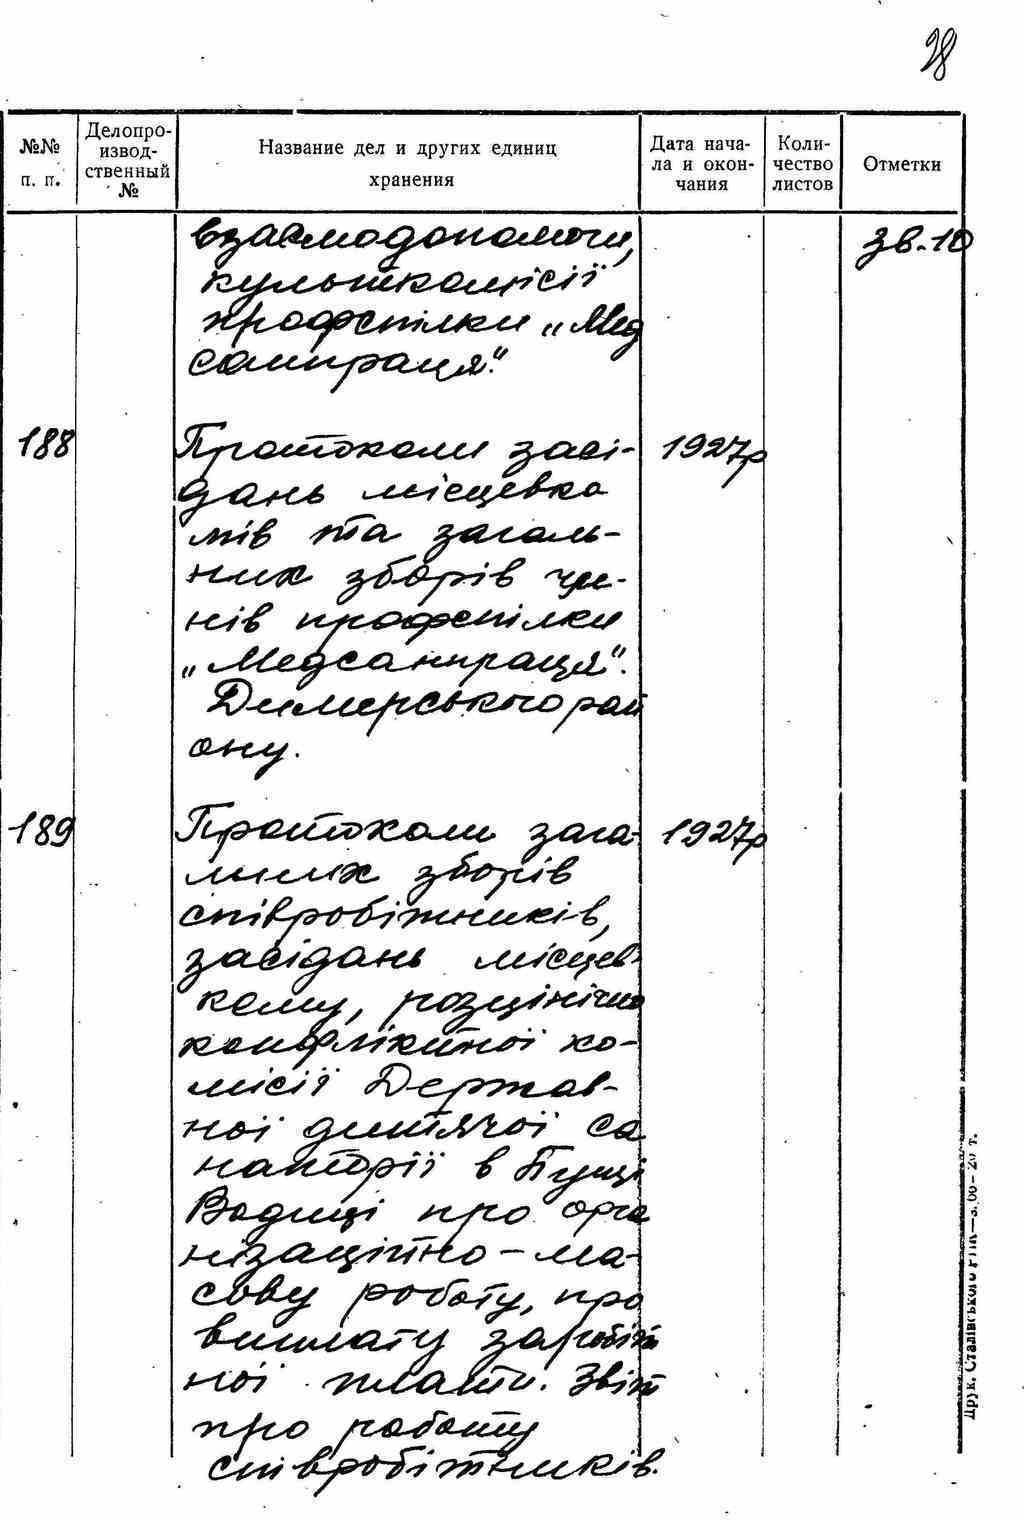 28
№№ п. п.
Делопро-
извод-
ственный
№
Название дел и других единиц
хранения
Дата нача-
ла и окон-
чания
Коли-
чество
листов
Отметки
взаємодопомоги, зв.10
культкомісії
профспілки „Мед
санпраця".
188 Протоколи засі- 1927р
дань місцевко
мів та загаль-
них зборів чле-
нів профспілки
„Медсанпраця".
Димерського рай
ону.
189 Протоколи зага- 1927р
льних зборів
співробітників,
засідань місцев-
кому, розцінічно
конфліктної ко-
місії Держав-
ної дитячої са
наторії в Пущі
Водиці про орга
нізаційно-ма-
сову роботу, про
виплату заробіт
ної плати. Звіт
про роботу
співробітників.
Друк. Сталінського